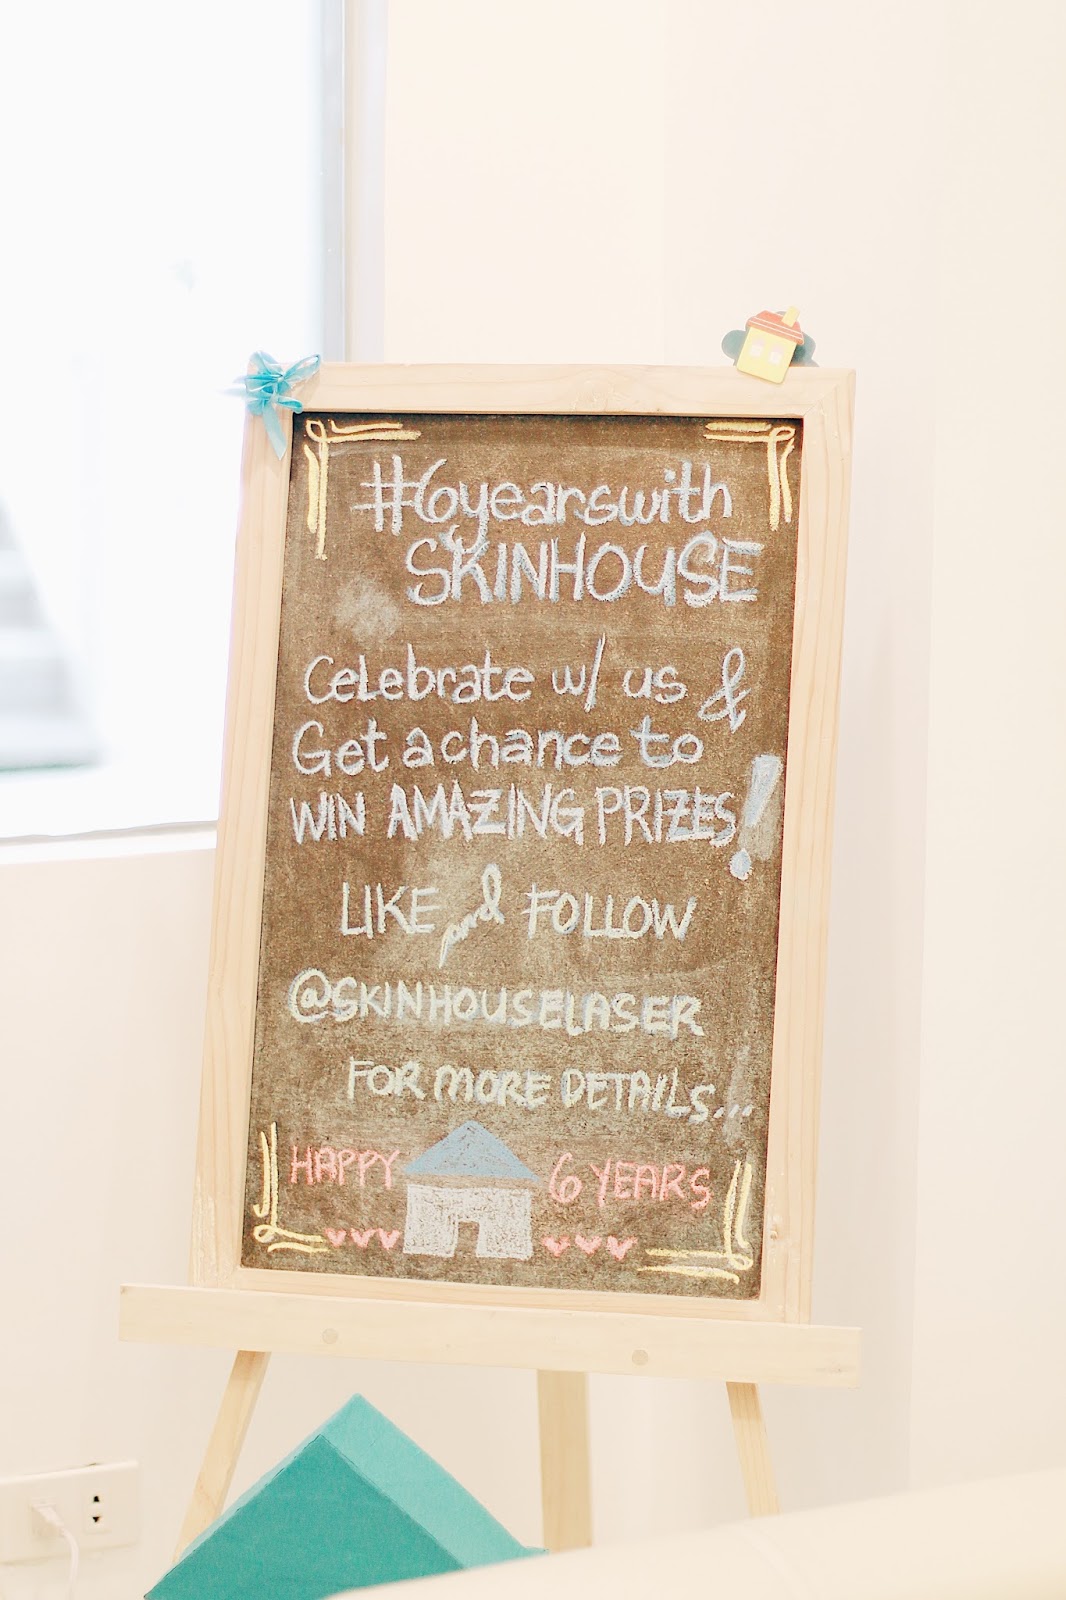 #6yearswith
SKINHOUSE
Celebrate w/ us &
Get a chance to
WIN AMAZING PRIZES!
LIKE and FOLLOW
@SKINHOUSELASER
FOR MORE DETAILS...
HAPPY 6 YEARS